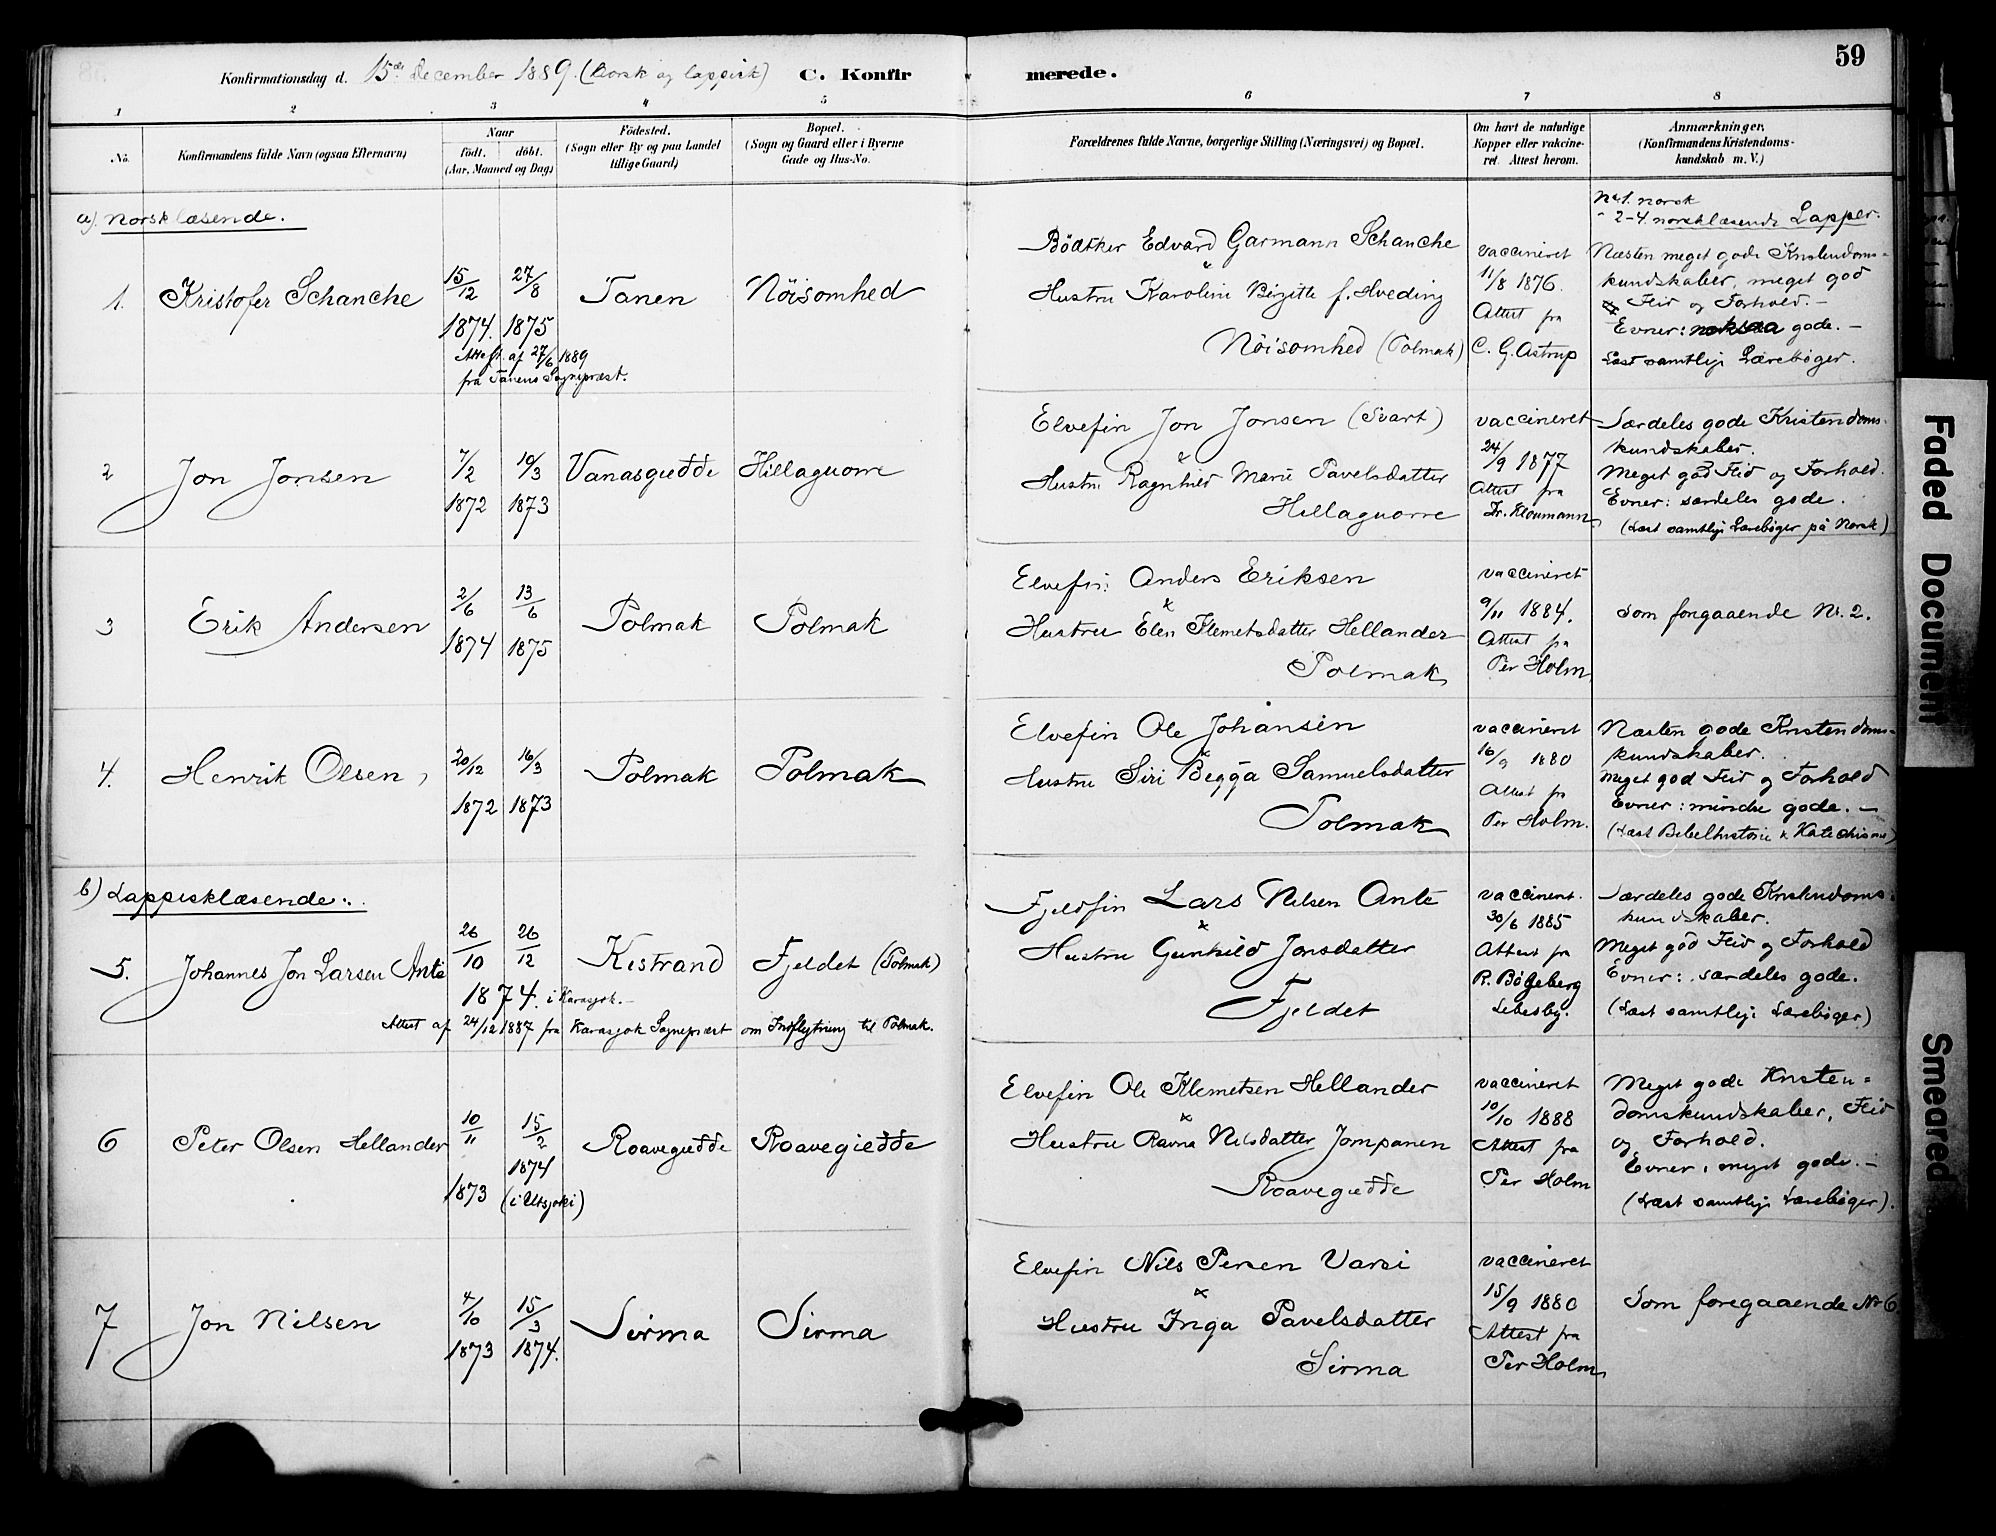 59
Konfirmationsdag d. 15de december 1889. (norsk og lappisk) C. Konfirmerede.
1 2 3 4 5 6 7 8
No.
Konfirmandens fulde Navn (ogsaa Efternavn)
Naar
födt. döbt.
(Aar, Maaned og Dag)
Födested.
(Sogn eller By og paa Landet
tillige Gaard)
Bopæl.
(Sogn og Gaard eller i Byerne
Gade og Hus-No.
Forældrenes fulde Navne, borgerlige Stilling (Næringsvei) og Bopæl.
Om havt de naturlige
Kopper eller vakcine-
ret. Attest herom.
Anmærkninger.
(Konfirmandens Kristendoms-
kundskab m. V.)
a) Norsklæsende.
Nr 1. norsk
" 2-4. norsklæsende Lapper.
1. Kristofer Schanche
15/12 27/8
1874. 1875
Attest af 27/6 1889
fra Tanens Sognepræst.
Tanen
Nöisomhed
Bödtker Edvard Garmann Schanche
&
Hustru Karoline Birgitte f. Hveding
Nöisomhed (Polmak)
vaccineret
11/8 1876.
Attest fra
C. G. Astrup
Næsten meget gode Kristendoms-
kundskaber, meget god
Flid og Forhold. -
Evner: gode. -
Læst samtlige Lærebøger.
2 Jon Jonsen
7/2 10/3
1872 1873
Vanasgiedde
Hillaguorre
Elvefin Jon Jonsen (Svart)
&
Hustru Ragnhild Marie Pavelsdatter
Hillaguorre
vaccineret
24/9 1877
Attest fra
Fr. Kloumann
Særdeles gode Kristendoms-
kundskaber.
Meget god Flid og Forhold.
Evner: særdeles gode.
(Læst samtlige Lærebøger på Norsk)
3 Erik Andersen
2/6 13/6
1874 1875
Polmak
Polmak
Elvefin: Anders Eriksen
&
Hustru Elen Klemetsdatter Hellander
Polmak
vaccineret
9/11 1884.
Attest fra
Per Holm
Som forgaaende Nr. 2.
4. Henrik Olsen,
20/12 16/3
1872 1873
Polmak
Polmak
Elvefin Ole Johansen
&
Hustru Siri Begga Samuelsdatter
Polmak
vaccineret
16/9 1880
Attest fra
Per Holm.
Næsten gode Kristendoms-
kundskaber.
Meget god Flid og Forhold
Evner: mindre gode. -
(Læst Bibelhistorie & Katechisme)
b) Lappisklæsende:
5. Johannes Jon Larsen Ante
26/10 26/12
1874. i Karasjok. -
Attest af 24/12 1887 fra Karasjok Sognepræst om Indflytning til Polmak.
Kistrand
Fjeldet (Polmak)
Fjeldfin Lars Nilsen Ante
&
Hustru Gunhild Jonsdatter
Fjeldet
vaccineret.
30/6 1885
Attest fra
R. Bögeberg
Lebesby.
Særdeles gode Kristendoms-
kundskaber.
Meget god Flid og Forhold
Evner: særdeles gode.
(Læst samtlige Lærebøger)
6 Peter Olsen Hellander
10/11 15/2
1873 1874
(i Utsjoki)
Roavegiedde
Roavegiedde
Elvefin Ole Klemetsen Hellander
&
Hustru Ravna Nilsdatter Jompanen
Roavegiedde
vaccineret
10/10 1888
Attest fra
Per Holm
Meget gode Kristen-
domskundskaber, Flid
og Forhold.
Evner: meget gode. -
(Læst samtlige Lærebøger).
7 Jon Nilsen
4/10 15/3
1873 1874.
Sirma
Sirma
Elvefin Nils Persen Varsi
&
Hustru Inga Pavelsdatter
Sirma
vaccineret
15/9 1880
Attest fra
Per Holm
Som foregaaende Nr 6
Faded Document
Smeared